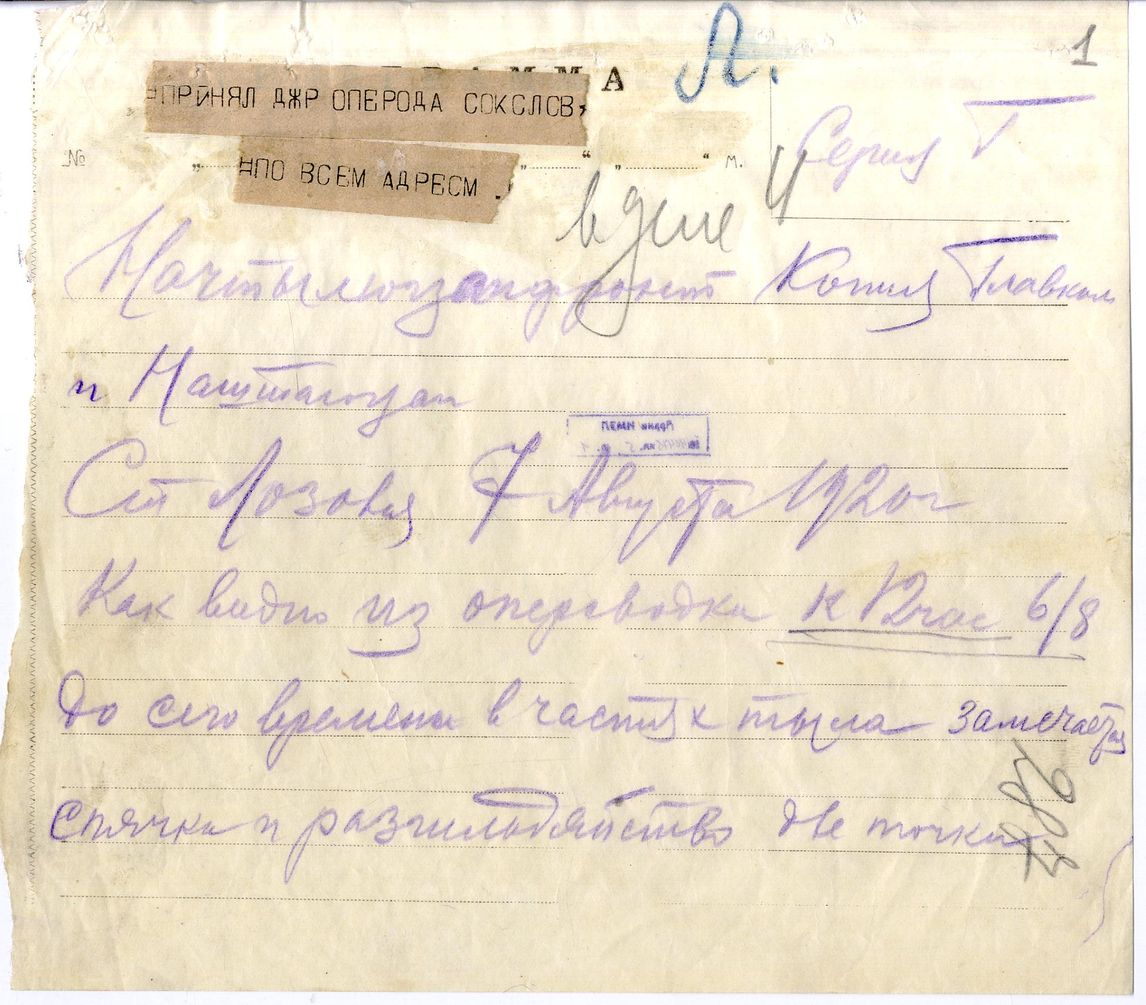 Л.
1
ГРАММА
=ПРИНЯЛ ДЖР ОПЕРОДА СОКСЛСВ,
№ „ “ „ “ м.
=ПО ВСЕМ АДРЕСМ .
Серия Г
в деле 4
Начтылюгзапфронт Копия Главком
и Наштаюгзап
Ст Лозовая 7 Августа 1920 г
Как видно из оперсводки к 12 час 6/8
до сего времени в частях тыла замечается
спячка и разгильдяйство две точки